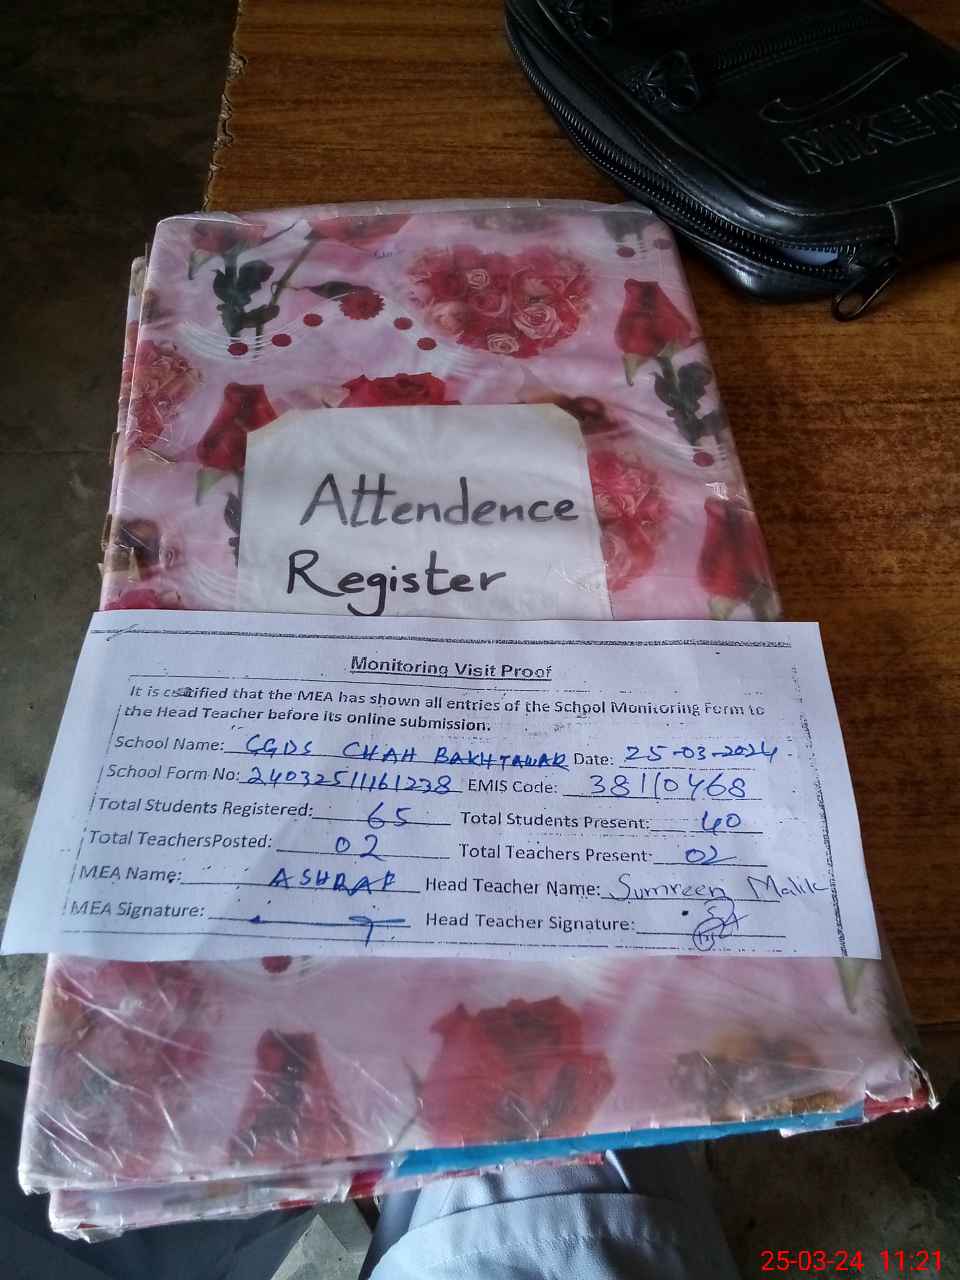 NIKE
Attendence
Register
Monitoring Visit Proof
It is certified that the MEA has shown all entries of the School Monitoring Form to
the Head Teacher before its online submission.
School Name: CGDS CHAH BAKHTAWAR Date: 25-03-2024
School Form No: 24032511161238 EMIS Code: 38110468
Total Students Registered: 65 Total Students Present: 40
Total TeachersPosted: 02 Total Teachers Present: 02
MEA Name: ASHRAF Head Teacher Name: Sumreen Malik
MEA Signature: Head Teacher Signature:
25-03-24 11:21